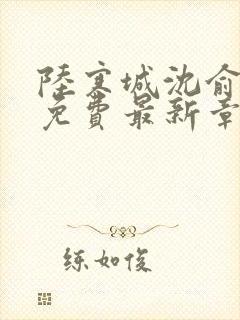 陸寒城沈俞
免費最新章
练如俊